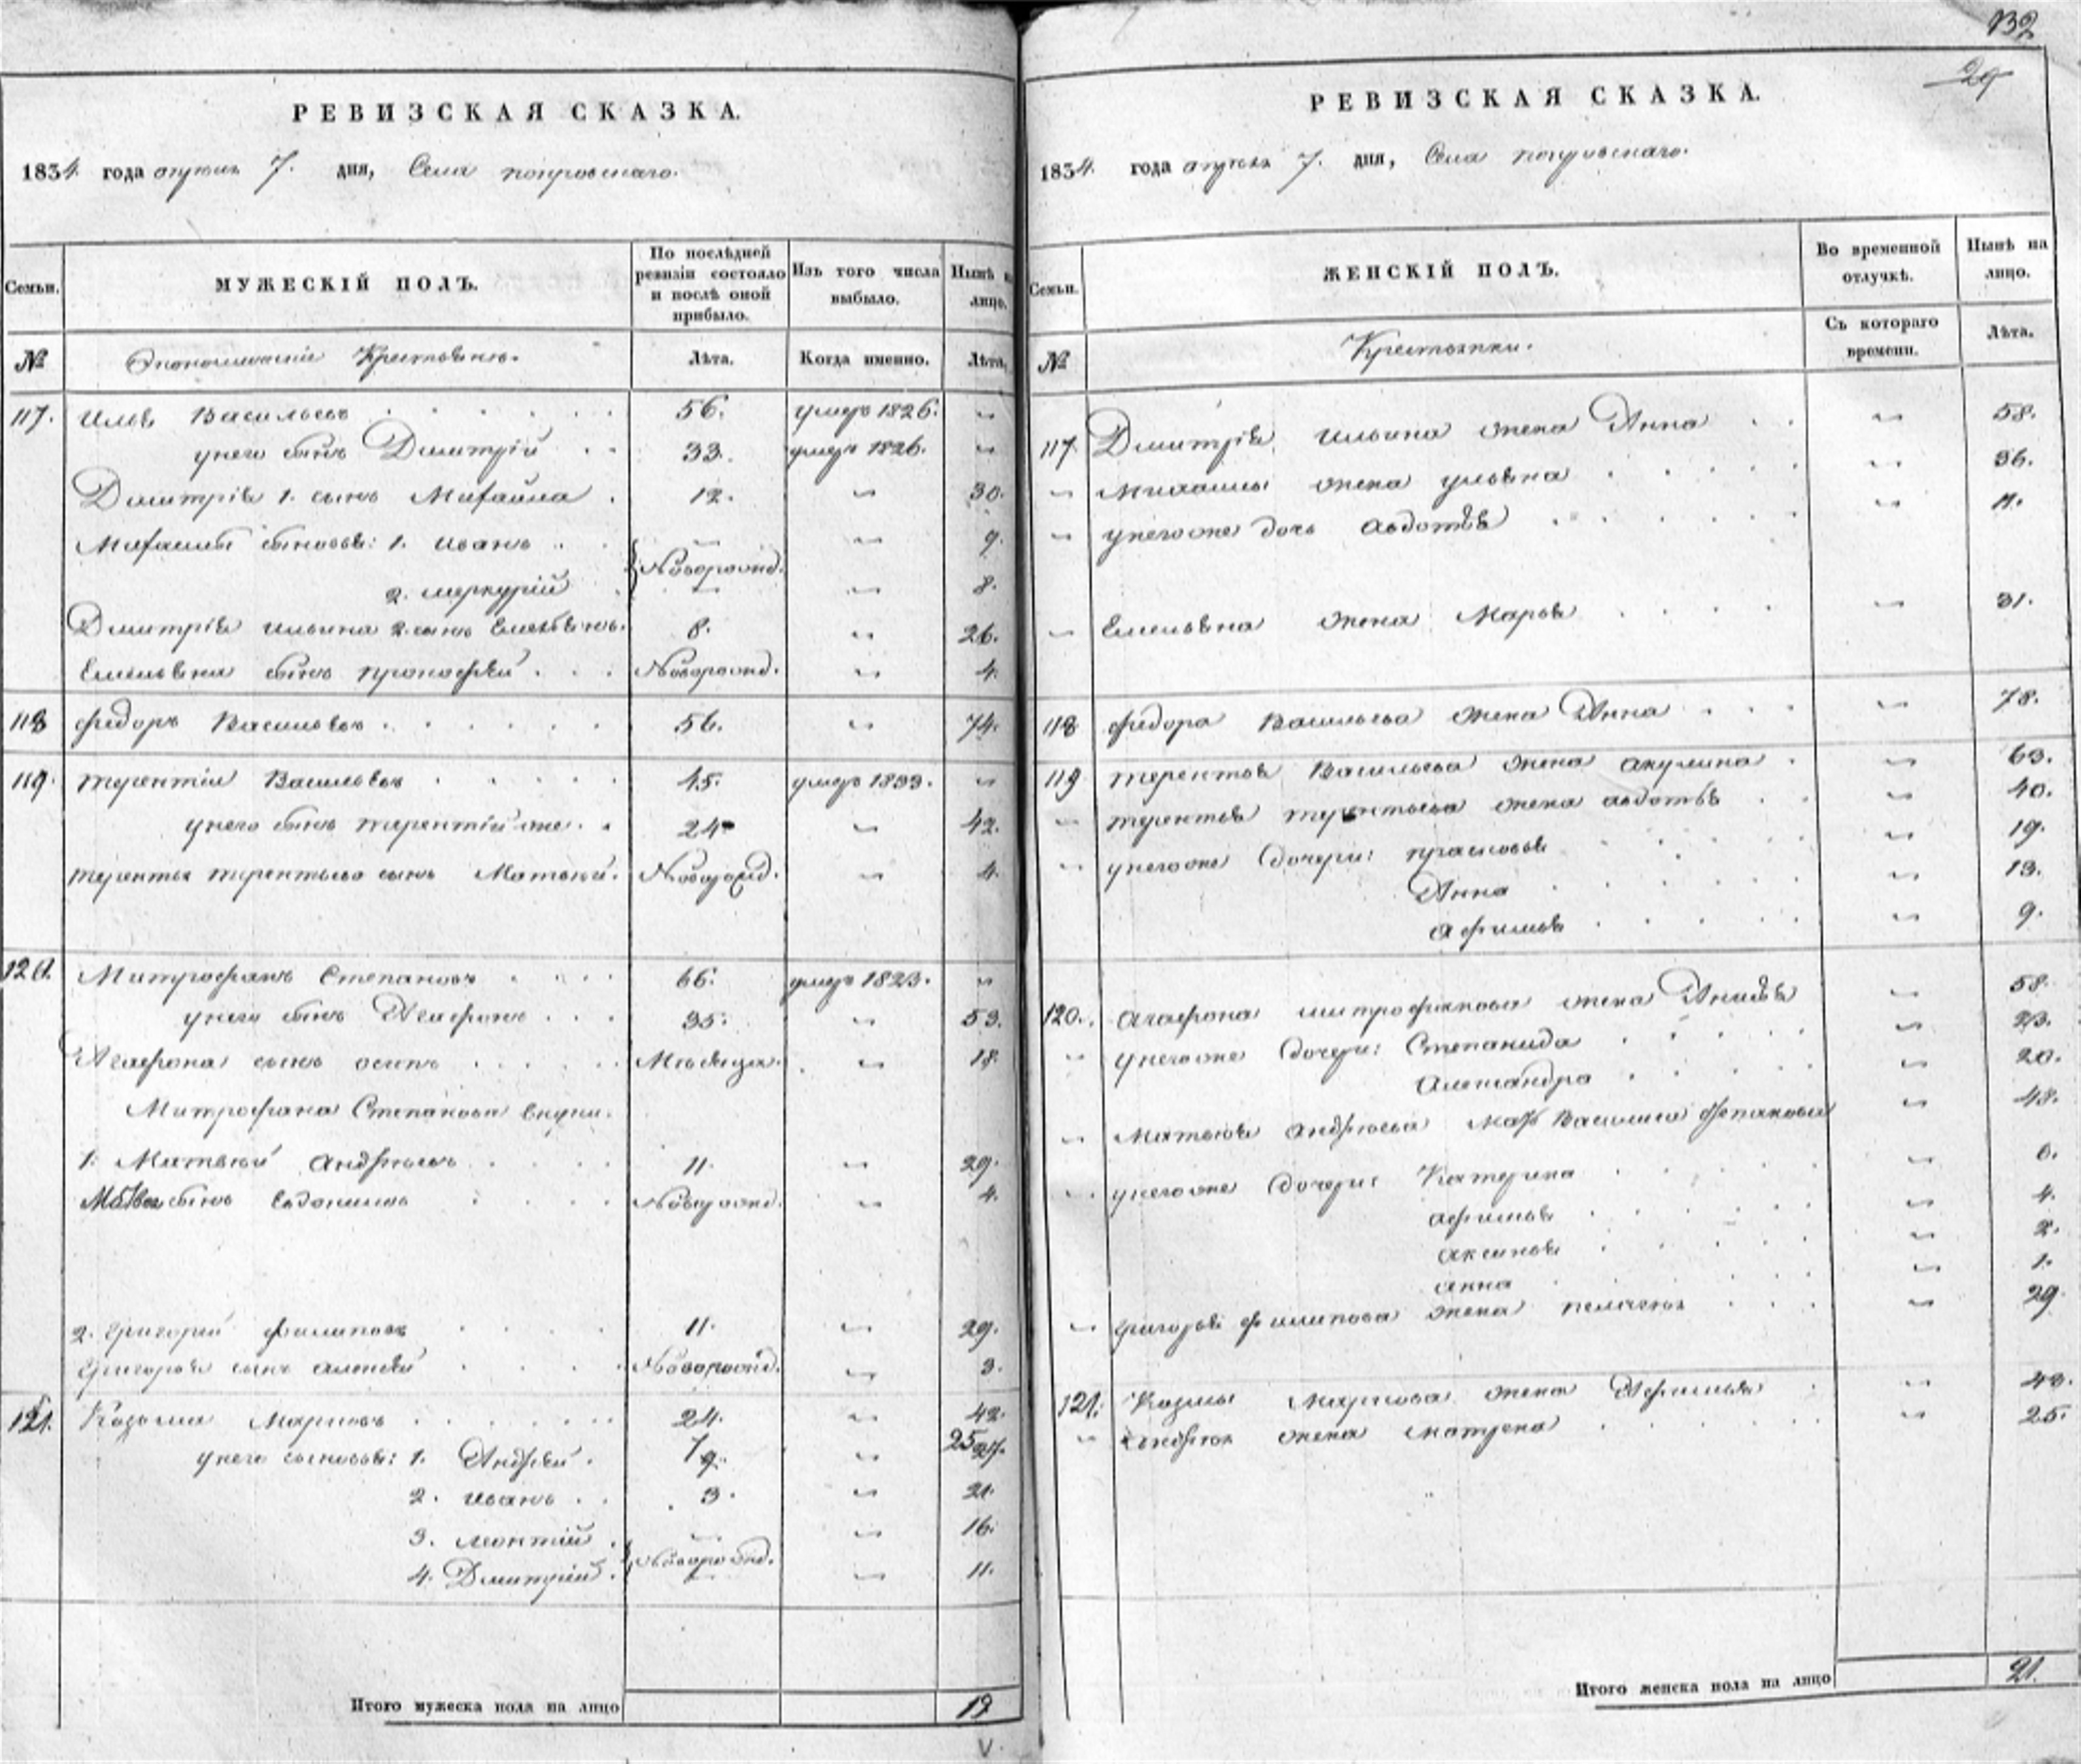 РЕВИЗСКАЯ СКАЗКА.
1834. года апреля 7. дня, Села покровскаго.
Семьи.
МУЖЕСКІЙ ПОЛЪ.
По послѣдней ревизіи состояло и послѣ оной прибыло.
Изъ того числа выбыло.
Нынѣ на лицо.
№
Экономическіе Крестьянъ.
Лѣта.
Когда именно.
Лѣта.
117. Илья Васильевъ 56. умеръ 1826. „
унего сынъ Дмитрій 33. умеръ 1826. „
Дмитрія 1. сынъ Михайла 12. „ 30.
Михайлы сыновья: 1. Иванъ „ „ 9.
Новорожд.
2. меркурій „ „ 8.
Дмитрія Ильина 2. сынъ Емельянъ. 8. „ 26.
Емельяна сынъ прокофей Новорожд. „ 4.
118 федоръ Васильевъ 56. „ 74.
119. терентій Васильевъ 45. умеръ 1833. „
унего сынъ терентій же 24 „ 42.
терентья терентьева сынъ Матвей. Новорожд. „ 4.
120. Митрофанъ Степановъ 66. умеръ 1823. „
унего сынъ Агафонъ 35. „ 53.
Агафона сынъ осипъ Мѣсяца. „ 18.
Митрофана Степанова внуки.
1. Матвей андреевъ 11. „ 29.
Матвея сынъ Евдокимъ Новорожд. „ 4.
2. григорей филиповъ 11. „ 29.
григорья сынъ алексей Новорожд. „ 3.
121. Козьма Марковъ 24. „ 42.
унего сыновья: 1. Андрей. 7 9. „ 25 27.
2. иванъ 3. „ 21.
3. леонтій „ „ 16.
Новорожд.
4. Дмитрій. „ „ 11.
Итого мужеска пола на лицо 19
132
29
РЕВИЗСКАЯ СКАЗКА.
1834. года апреля 7. дня, Села покровскаго.
Семьи.
ЖЕНСКІЙ ПОЛЪ.
Во временной отлучкѣ.
Нынѣ на лицо.
№
Крестьянки.
Съ котораго времени.
Лѣта.
117. Дмитрія Ильина жена Анна „ 58.
„ Михайлы жена ульяна „ 36.
„ унегоже дочь авдотья „ 11.
„ Емельяна жена Марья „ 31.
118 федора Васильева жена Анна „ 78.
119 терентья Васильева жена акулина „ 63.
„ терентья терентьева жена авдотья „ 40.
„ унегоже дочери: прасковья „ 19.
Анна „ 13.
афимья „ 9.
120. Агафона митрофанова жена „ 58.
„ унегоже дочери: Степанида „ 23.
Александра „ 20.
„ Матвея андреева мать Василиса „ 48.
„ унегоже дочери: Катерина „ 6.
афимья „ 4.
аксинья „ 2.
анна „ 1.
„ григорья филипова жена пелагея „ 29.
121. Козмы Маркова жена Афимья „ 43.
„ андрея жена матрена „ 25.
Итого женска пола на лицо 21.